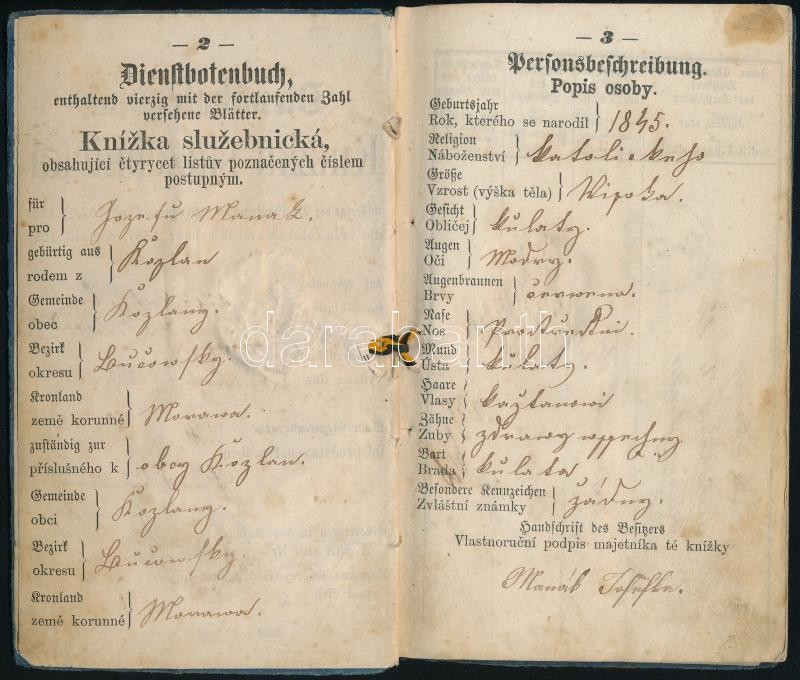 — 2 —
Dienstbotenbuch,
enthaltend vierzig mit der fortlaufenden Zahl
versehene Blätter.
Knížka služebnická,
obsahující čtyrycet listův poznačených číslem
postupným.
für
pro } Jozefu Manak.
gebürtig aus
rodem z } Kozlan
Gemeinde
obec } Kozlany.
Bezirk
okresu } Bučowsky.
Kronland
země korunné } Morawa.
zuständig zur
příslušného k } obcy Kozlan.
Gemeinde
obci } Kozlany.
Bezirk
okresu } Bučowsky.
Kronland
země korunné } Morawa.
— 3 —
Personsbeschreibung.
Popis osoby.
Geburtsjahr
Rok, kterého se narodil } 1845.
Religion
Náboženství } katolickeho
Größe
Vzrost (výška těla) } Wisoka.
Gesicht
Obličej } kulaty.
Augen
Oči } Modry.
Augenbraunen
Brvy } čerwena.
Nase
Nos } Prostředni.
Mund
Ústa } kulaty.
Haare
Vlasy } kaštanowi
Zähne
Zuby } zdrawy wssechny
Bart
Brada } kulata
Besondere Kennzeichen
Zvláštní známky } žádny.
Handschrift des Besitzers
Vlastnoruční podpis majetníka té knížky
Manák
darabanth